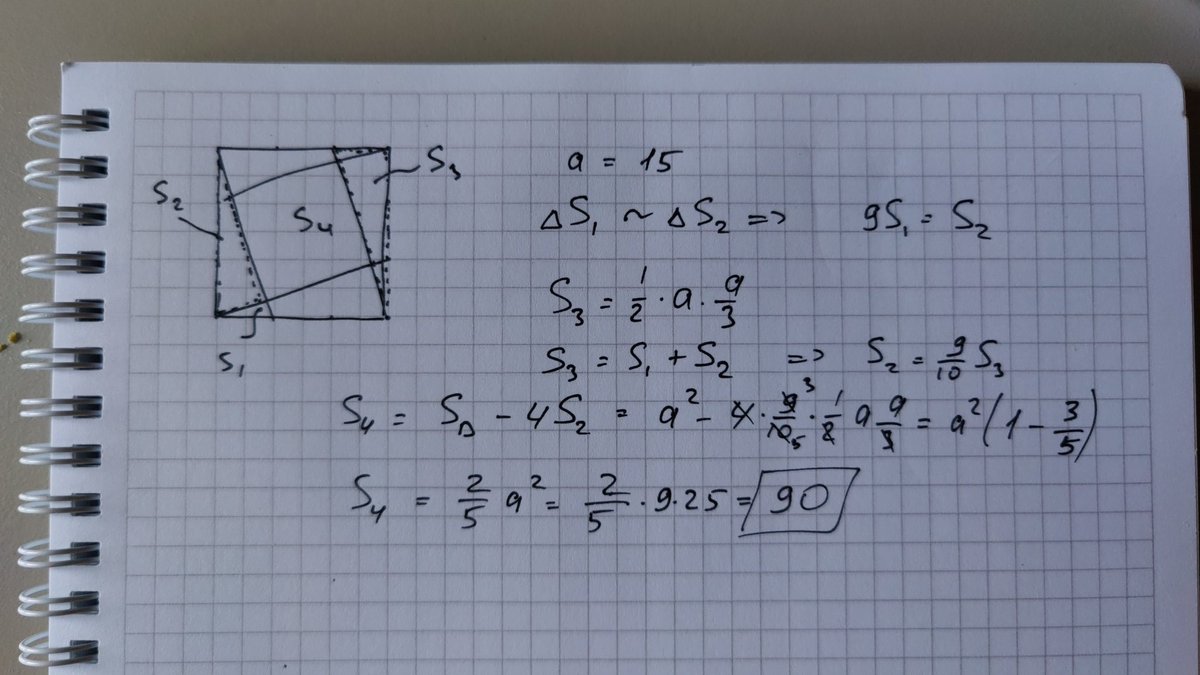 S₃
a = 15
S₂
S₄
ΔS₁ ~ ΔS₂ => 9S₁ = S₂
S₃ = 1/2 · a · a/3
S₁
S₃ = S₁ + S₂ => S₂ = 9/10 S₃
S₄ = S□ - 4S₂ = a² - 4 · 9/10 · 1/2 a a/3 = a² (1 - 3/5)
S₄ = 2/5 a² = 2/5 · 9 · 25 = 90